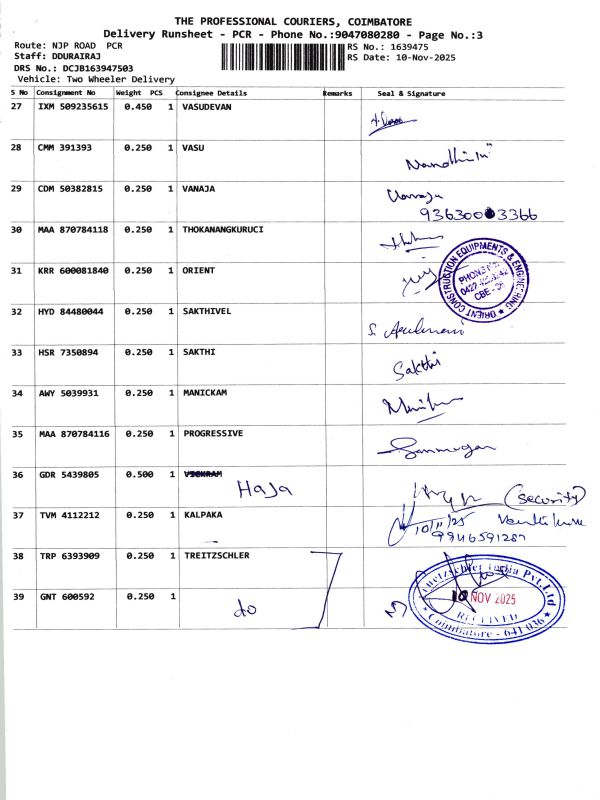 THE PROFESSIONAL COURIERS, COIMBATORE
Delivery Runsheet - PCR - Phone No.:9047080280 - Page No.:3
Route: NJP ROAD PCR
RS No.: 1639475
Staff: DDURAIRAJ
RS Date: 10-Nov-2025
DRS No.: DCJB163947503
Vehicle: Two Wheeler Delivery
S No Consignment No Weight PCS Consignee Details Remarks Seal & Signature
27 IXM 509235615 0.450 1 VASUDEVAN
28 CMM 391393 0.250 1 VASU
29 CDM 50382815 0.250 1 VANAJA Vanaja
30 MAA 870784118 0.250 1 THOKANANGKURUCI
31 KRR 600081840 0.250 1 ORIENT
ORIENT CONSTRUCTION EQUIPMENTS & ENGINEERING
32 HYD 84480044 0.250 1 SAKTHIVEL
33 HSR 7350894 0.250 1 SAKTHI Sakthi
34 AWY 5039931 0.250 1 MANICKAM
35 MAA 870784116 0.250 1 PROGRESSIVE
36 GDR 5439805 0.500 1 VICKRAM Haja (security)
37 TVM 4112212 0.250 1 KALPAKA 10/11/25
9946591287
38 TRP 6393909 0.250 1 TREITZSCHLER
39 GNT 600592 0.250 1 do
India Pvt. Ltd
10 NOV 2025
RECEIVED
Coimbatore - 641 036